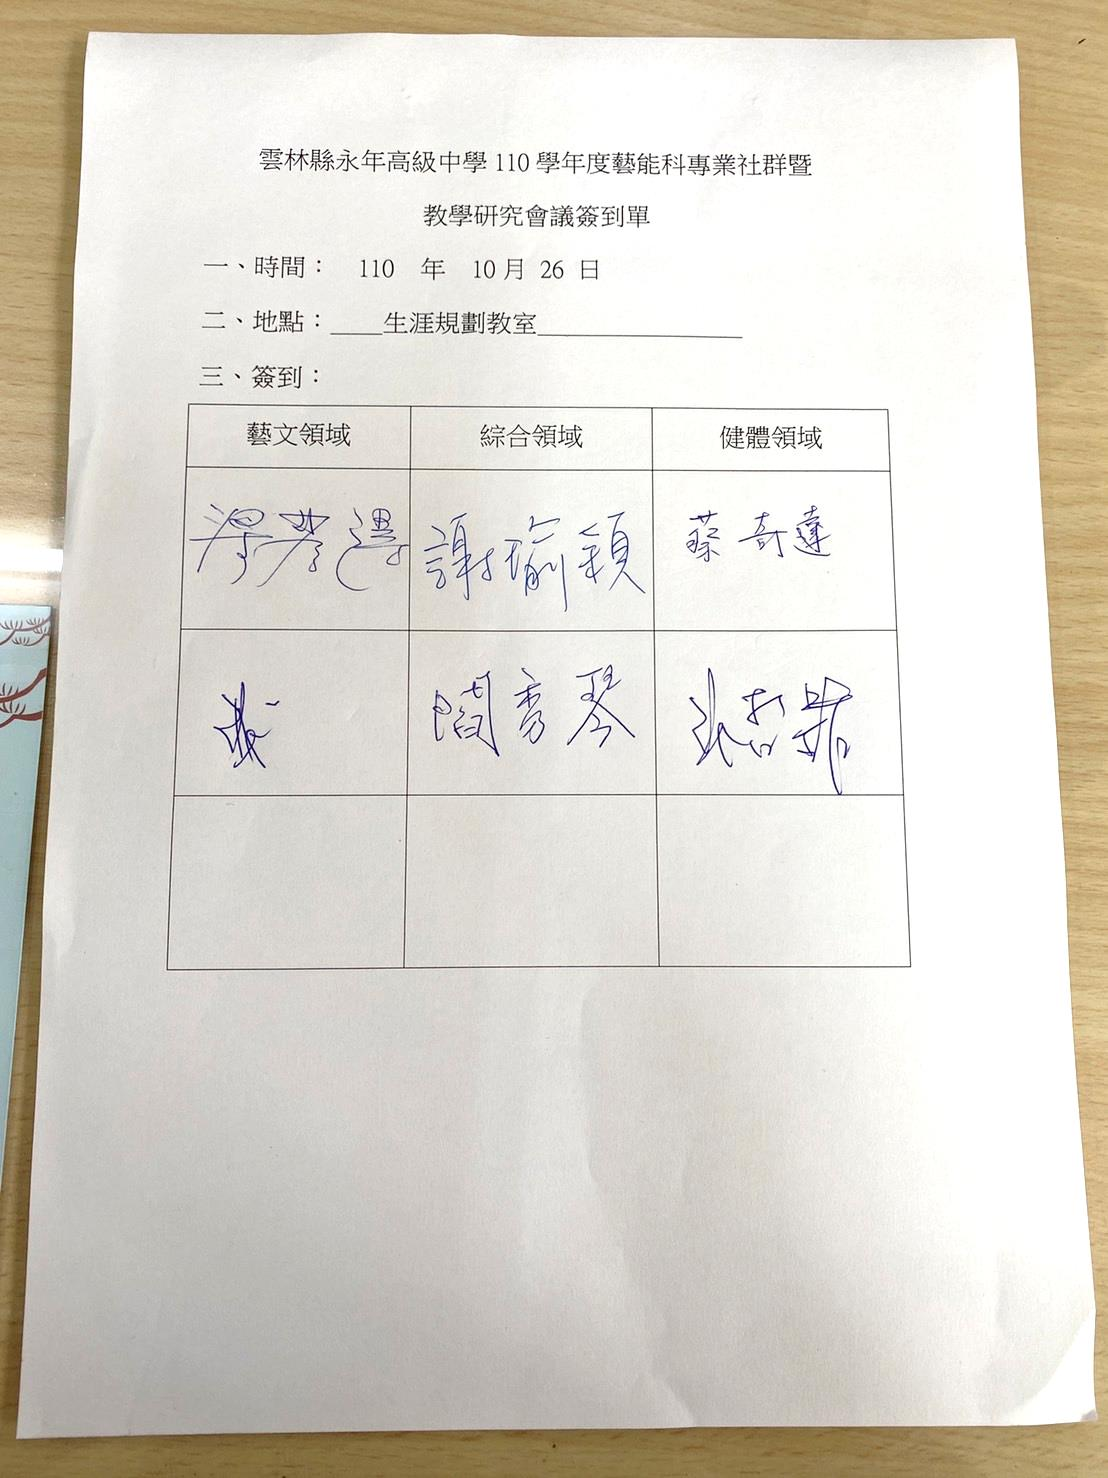 雲林縣永年高級中學 110 學年度藝能科專業社群暨
教學研究會議簽到單
一、時間： 110 年 10 月 26 日
二、地點：____生涯規劃教室________________
三、簽到：
藝文領域 綜合領域 健體領域
謝瑜穎 蔡奇達
簡秀琴